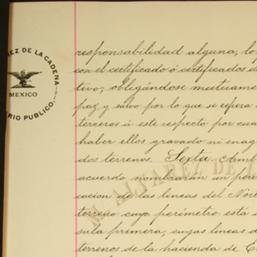 EZ DE LA CADENA
MEXICO
RIO PUBLICO.
responsabilidad alguna, lo
con el certificado ó certificados d
tivo, obligándose mutuamen
paz y salvo por lo que se refiera
terceros á este respecto por cua
haber ellos gravado ni enag
dos terrenos. Sexta Amb
acuerdo nombrarán un per
cacion de las lineas del Nor
terreno cuyo perímetro está
sula primera, cuyas lineas d
terrenos de la hacienda de C
ALVAREZ DE L